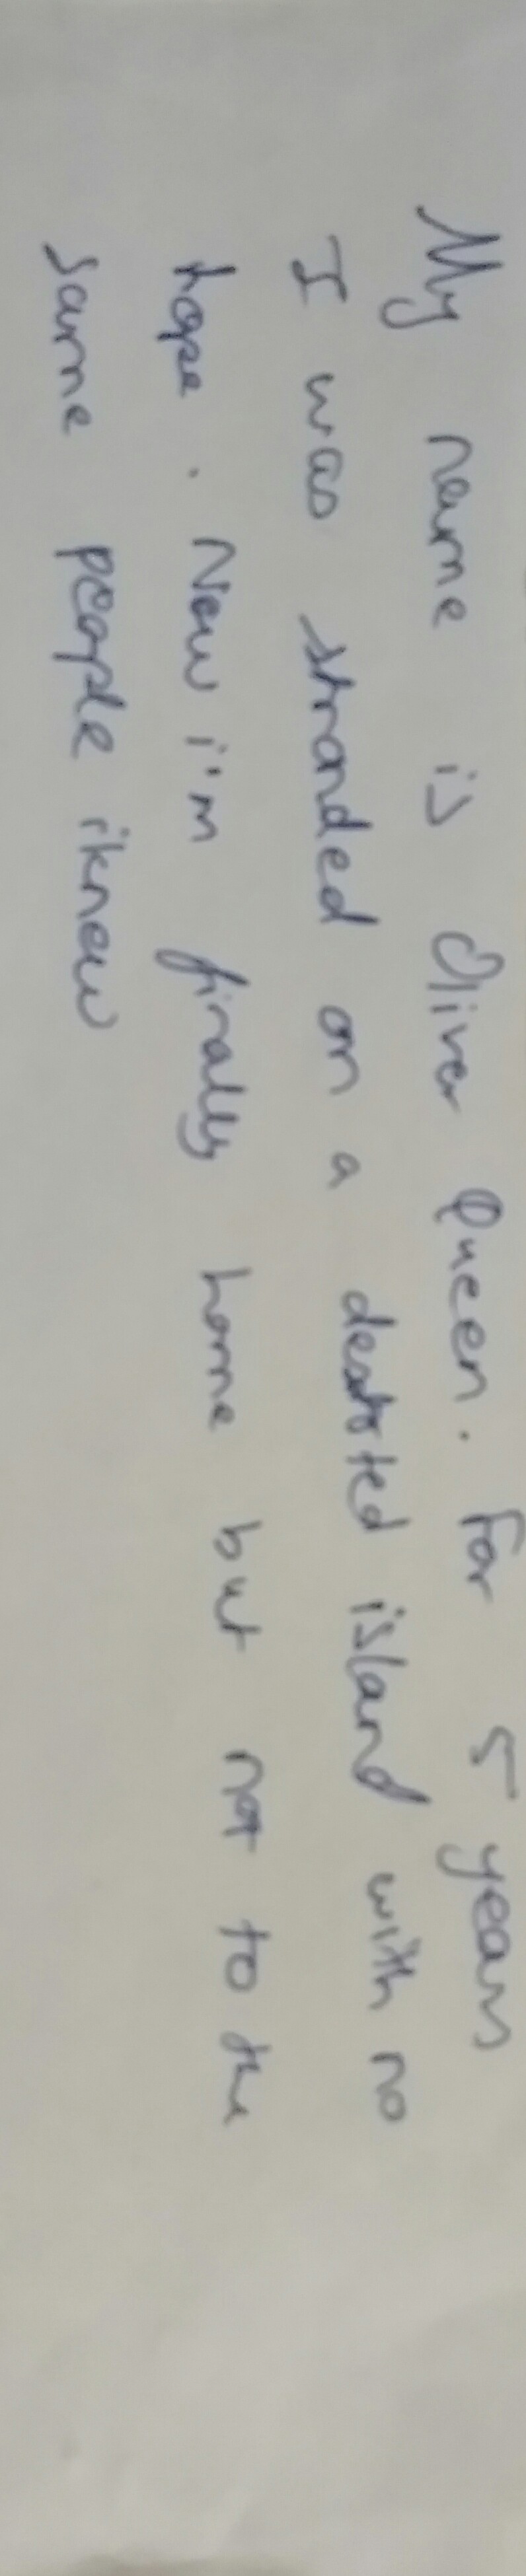 My name is Oliver Queen. For 5 years
I was stranded on a island with no
hope. Now i'm finally home but not to the
same people iknew